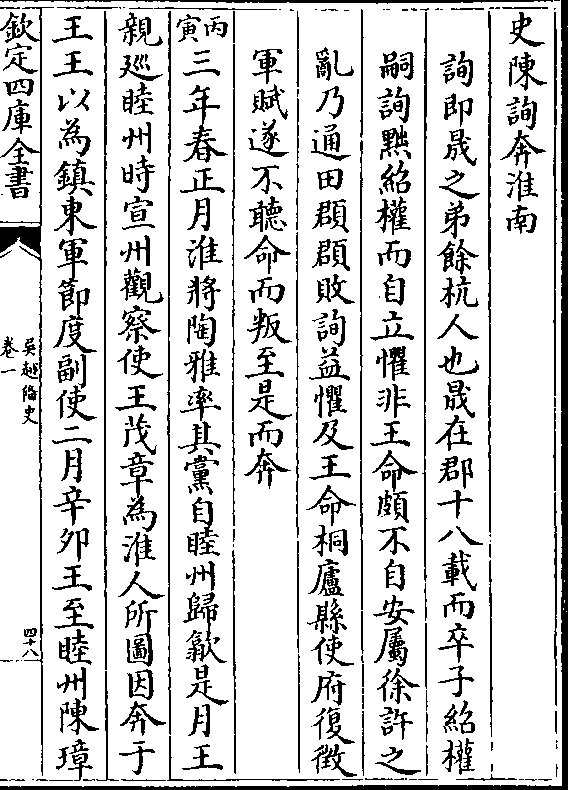 史陳詢奔淮南
詢即晟之弟餘杭人也晟在郡十八載而卒子紹權
嗣詢黜紹權而自立懼非王命頗不自安屬徐許之
亂乃通田頵頵敗詢益懼及王命桐廬縣使府復徵
軍賦遂不聽命而叛至是而奔
丙寅三年春正月淮將陶雅率其黨自睦州歸歙是月王
親廵睦州時宣州觀察使王茂章為淮人所圖因奔于
王王以為鎮東軍節度副使二月辛夘王至睦州陳璋
欽定四庫全書
吳越備史
卷一
四十八